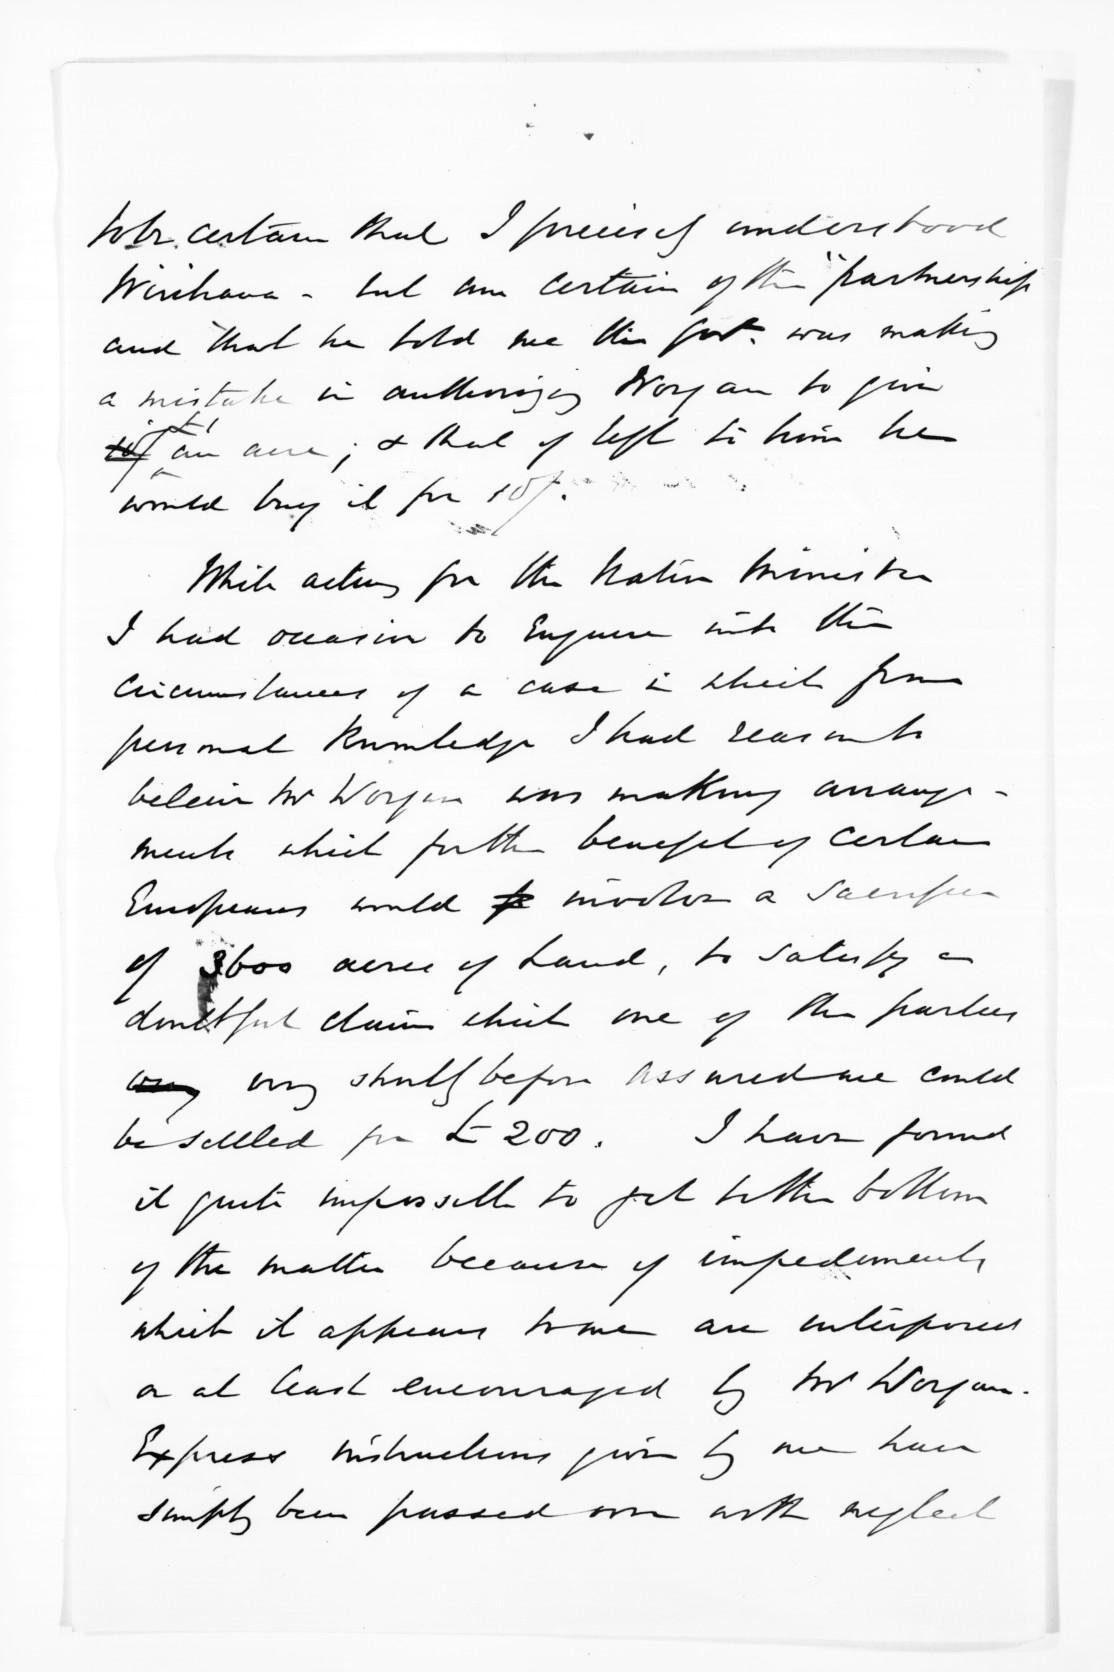 to be certain that I precisely understood
Wirihana - but am certain of the "partnership
and that he told me the Govt. was making
a mistake in authorizing Worgan to give
£1 an acre; & that if left to him he
would buy it for 10/.
While acting for the Native Minister
I had occasion to Enquire into the
circumstances of a case in which from
personal Knowledge I had reason to
believe Mr Worgan was making arrange-
ments which for the benefit of certain
Europeans would involve a sacrifice
of 3600 acres of Land, to satisfy a
doubtful claim which one of the parties
very shortly before assured me could
be settled for £200. I have found
it quite impossible to get to the bottom
of the matter because of impediments
which it appears to me are interposed
or at least encouraged by Mr Worgan.
Express instructions given by me have
simply been passed over with neglect